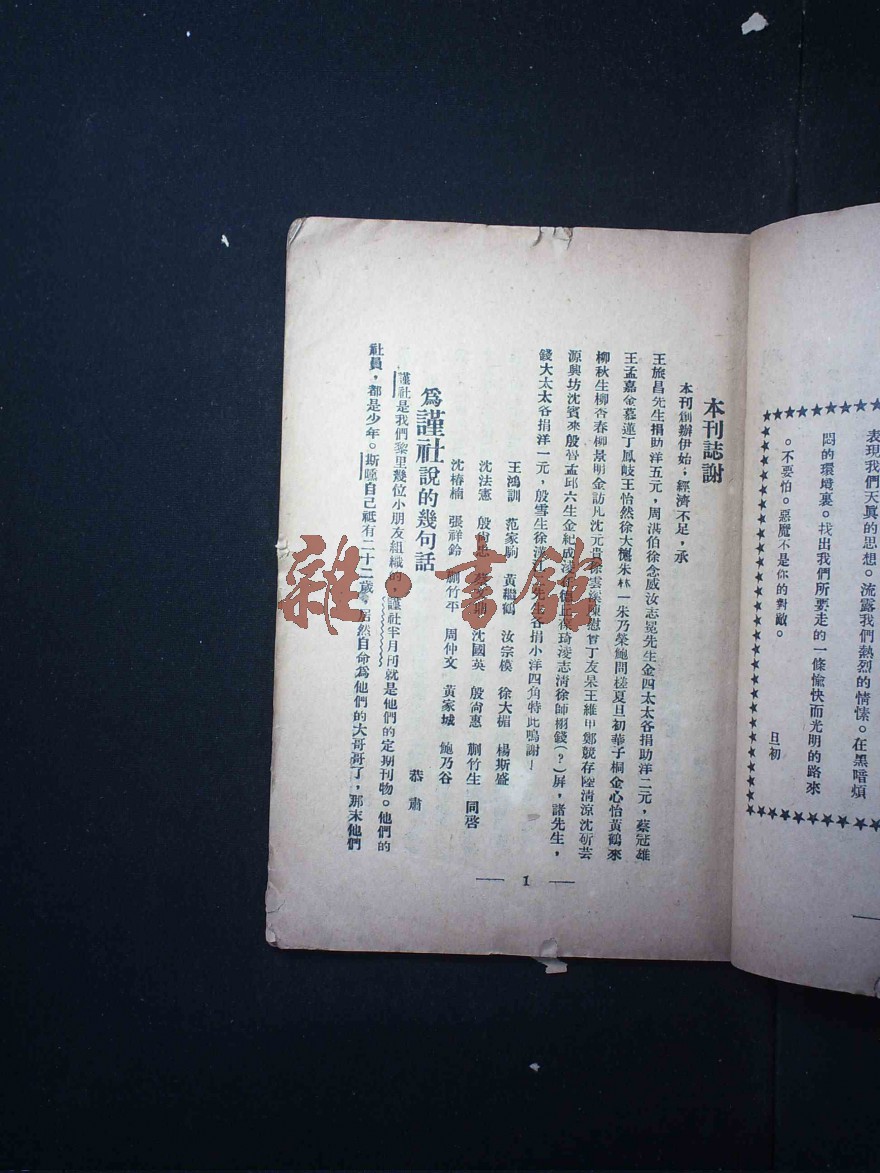 表現我們天真的思想。流露我們熱烈的情愫。在黑暗煩
悶的環境裏。找出我們所要走的一條愉快而光明的路來
。不要怕。惡魔不是你的對敵。
旦初
本刊誌謝
本刊創辦伊始,經濟不足,承
王旋昌先生捐助洋五元,周湛伯徐念威汝志冕先生金四太太各捐助洋二元,蔡冠雄
王孟嘉金慕蓮丁鳳岐王怡然徐大 朱林一朱乃榮鮑問槎夏旦初華子桐金心怡黃鶴來
柳秋生柳杏春柳景明金訪凡沈元貴 雲 陳慰 丁友杲王維甲鄭競存陸清涼沈硏芸
源興坊沈賓來殷 孟邱六生金紀成凌 琦凌志清徐師 錢(?)屏,諸先生,
錢大太太各捐洋一元,殷雪生徐 先生各捐小洋四角特此鳴謝!
王鴻訓 范家駒 黃繼鶴 汝宗模 徐大楣 楊斯盛
沈法憲 殷尙忠 蔡文 沈國英 殷尙惠 蒯竹生 同啓
沈椿楠 張祥鈴 蒯竹平 周仲文 黃家城 鮑乃谷
爲謹社說的幾句話
恭肅
謹社是我們黎里幾位小朋友組織的,謹社半月刊就是他們的定期刊物。他們的
社員,都是少年。斯 自己祗有二十二歲,居然自命爲他們的大哥哥了,那末他們
1
雜·書館